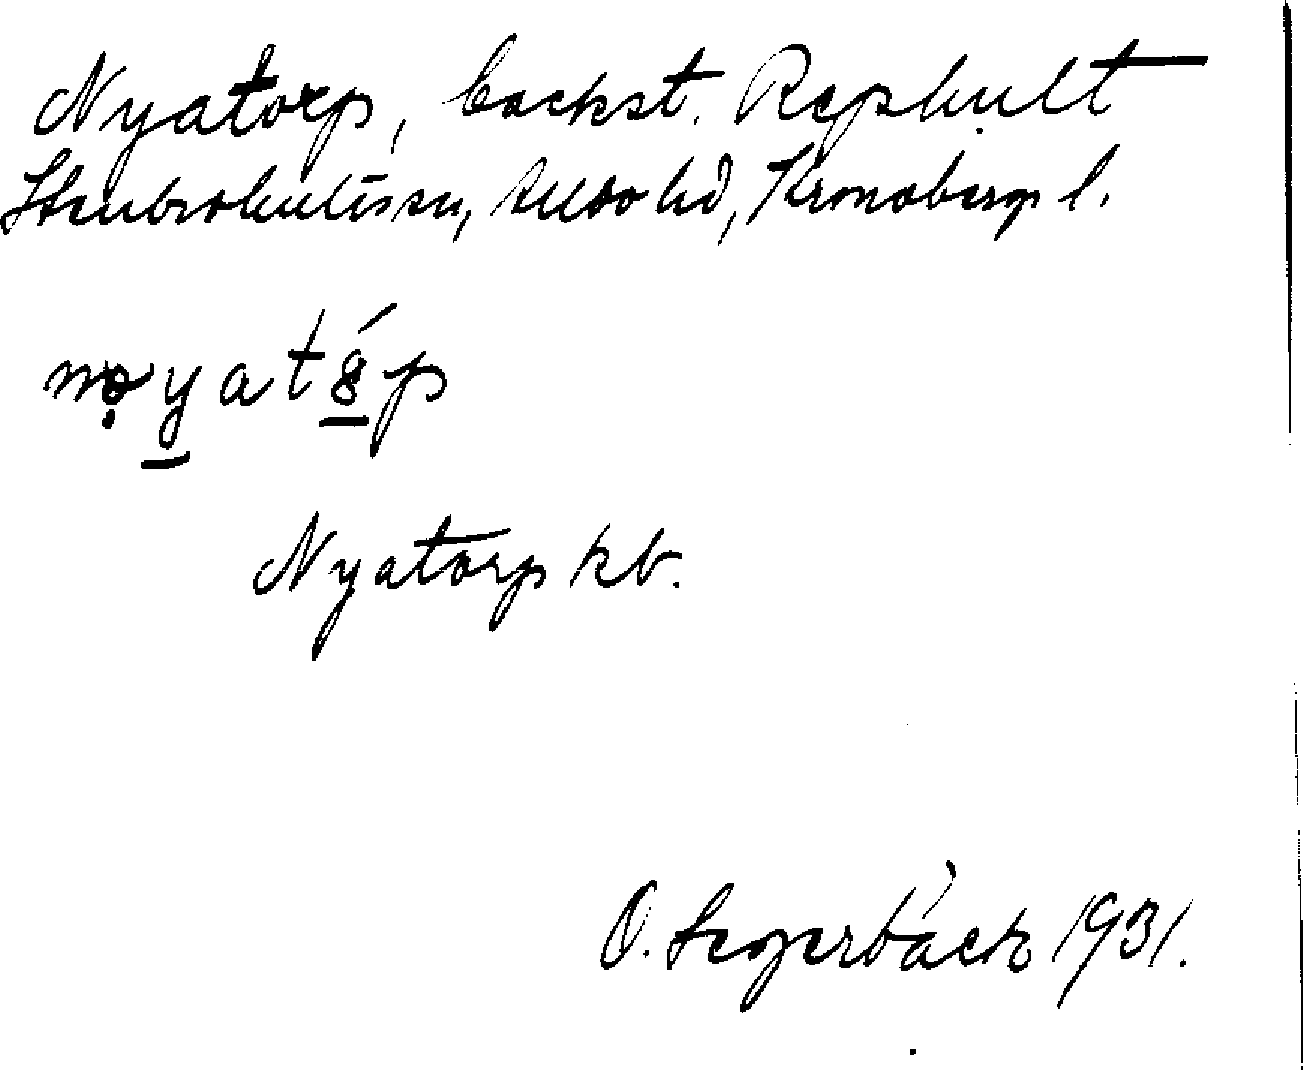 Nyatorp, backst. Rephult
Stenbrohults sn, Allbo hd, Kronobergs l.
nyatórp
Nyatorp kb.
O. Segerbäck 1931.